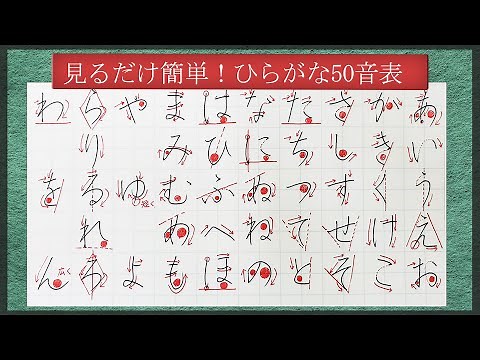 見るだけ簡単！ひらがな50音表
あいうえお
かきくけこ
さしすせそ
たちつてと
なにぬねの
はひふへほ
まみむめも
やゆよ
短く
らりるれろ
わをん
広く